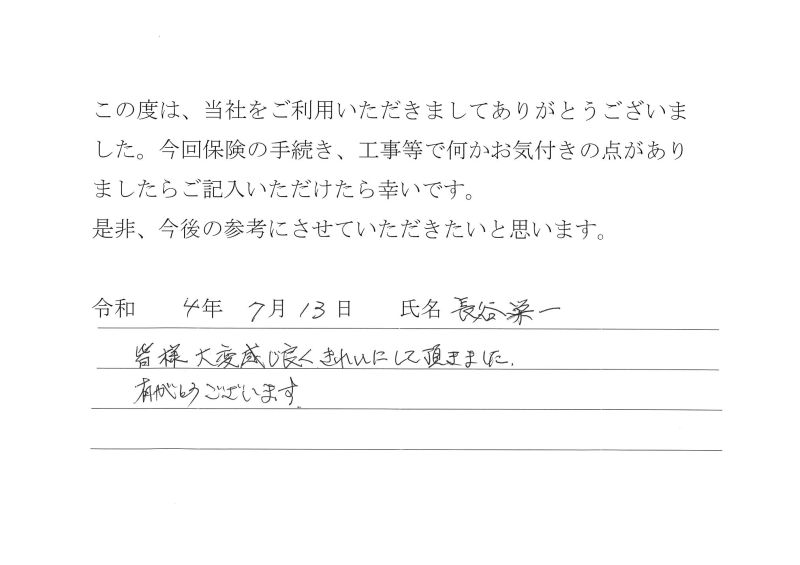 この度は、当社をご利用いただきましてありがとうございま
した。今回保険の手続き、工事等で何かお気付きの点があり
ましたらご記入いただけたら幸いです。
是非、今後の参考にさせていただきたいと思います。
令和 4年 7月13日 氏名 長谷栄一
皆様大変感じ良くきれいにして頂きました.
有がとうございます.